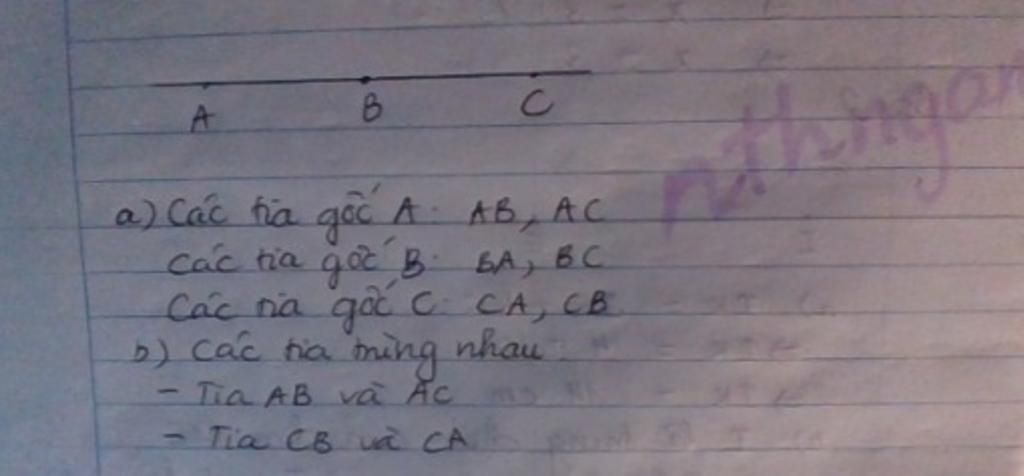 A B C
nthngan
a) Các tia gốc A: AB, AC
Các tia gốc B: BA, BC
Các tia gốc C: CA, CB
b) Các tia trùng nhau:
- Tia AB và AC
- Tia CB và CA